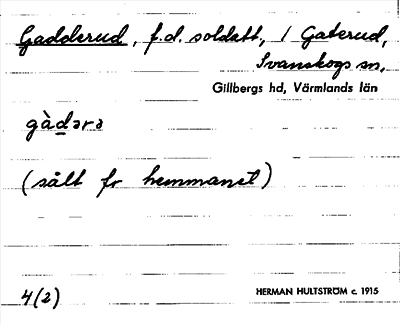 Gadderud, f.d. soldatt, / Gaterud,
Svanskogs sn,
Gillbergs hd, Värmlands län
gàdərə
(sålt fr hemmanet)
4(2)
HERMAN HULTSTRÖM c. 1915